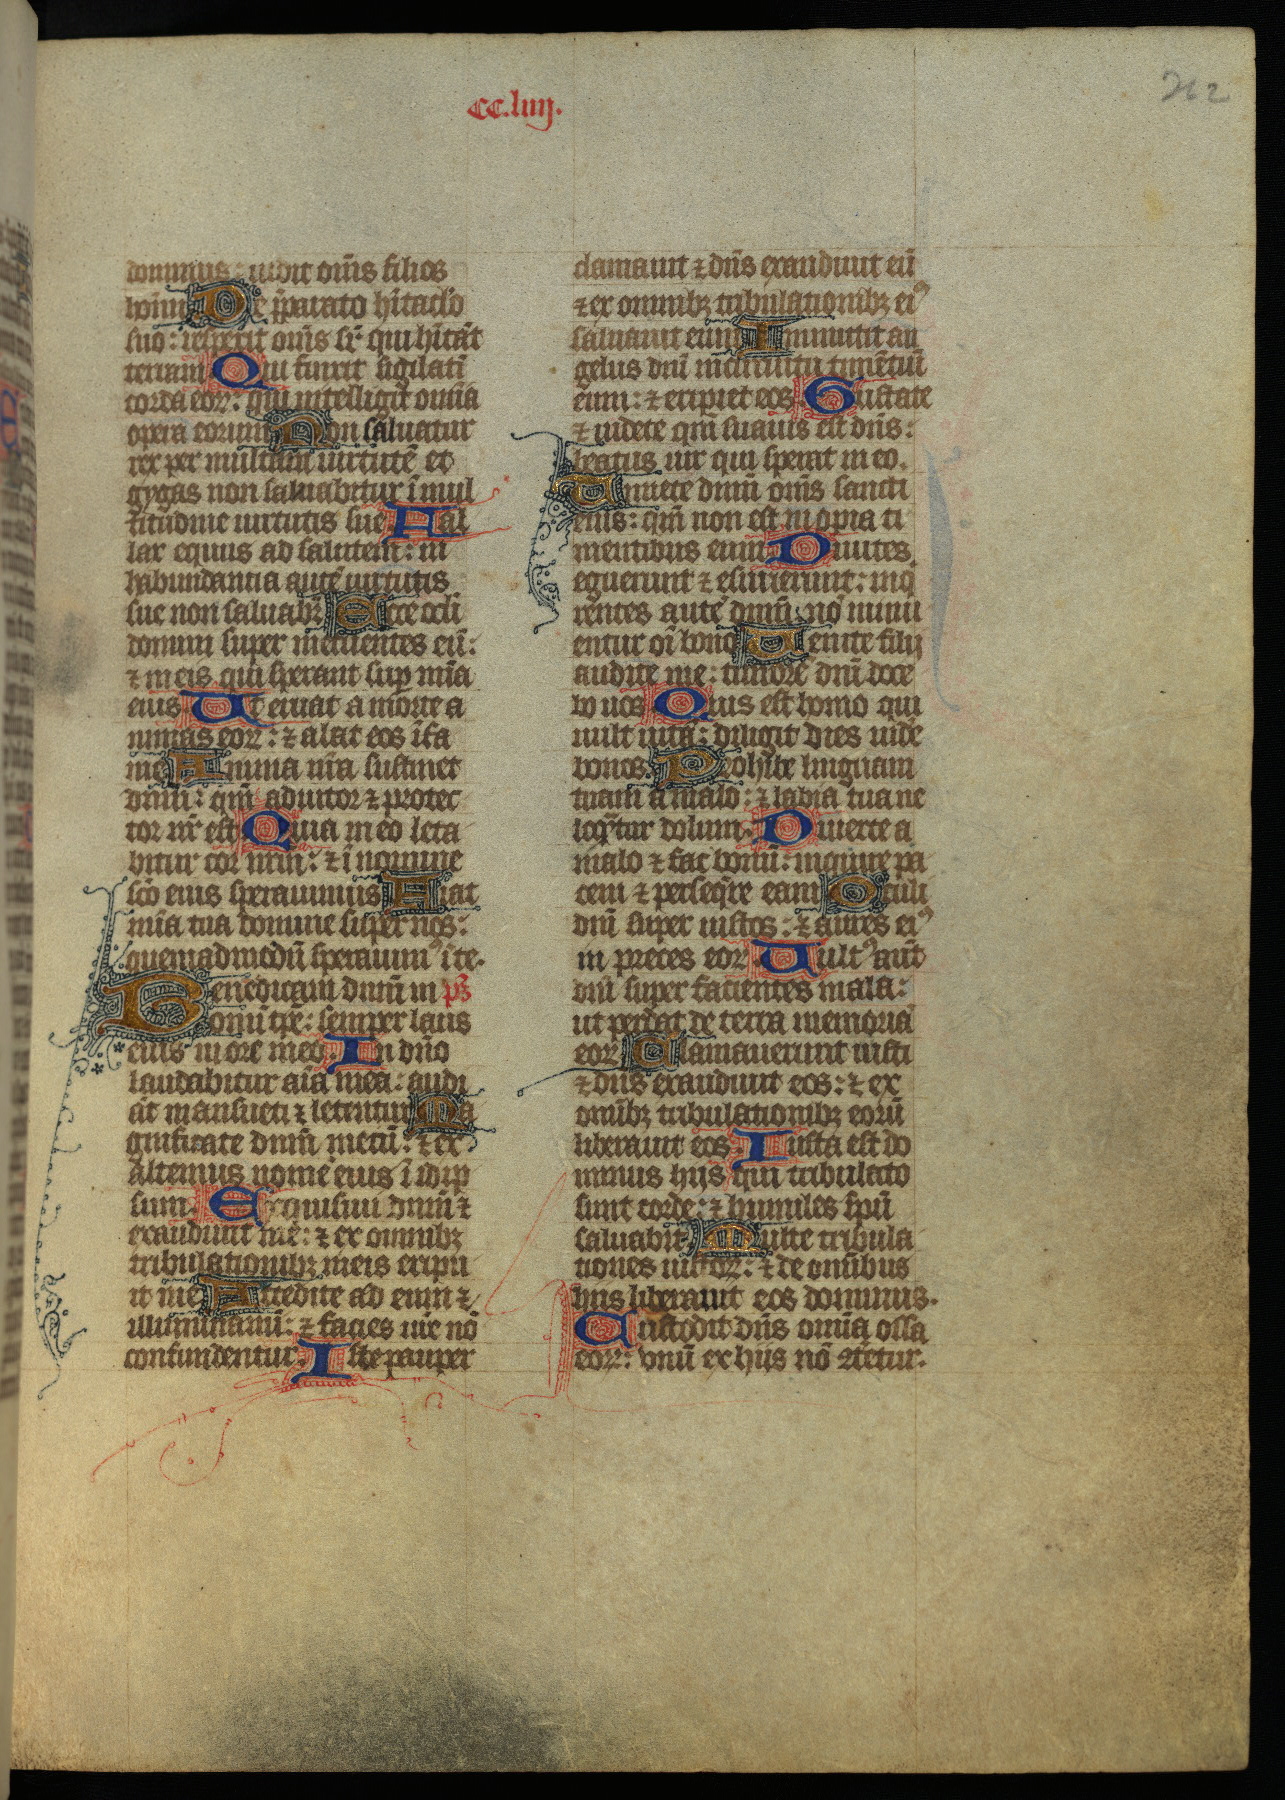 cc.luij.
262
dominus: uidit om̄s filios
hoīm De p̄parato hītaclo
suo: respexit om̄s sr̄ qui hītāt
terram Qui finxit sigilatī
corda eoꝝ: qui intelligit omīa
opera eorum Non saluatur
rex per multam uirtutē et
gygas non saluabitur ī mul
titudine uirtutis sue Fal
lax equus ad salutem: in
habundantia autē uirtutis
sue non saluabr̄ Ecce ocli
domini super metuentes eū:
⁊ in eis qui sperant sup mīa
eius Ut eruat a morte a
nimas eoꝝ: ⁊ alat eos ī fa
me Anima nr̄a sustinet
dnm̄: qm̄ adiutor ⁊ protec
tor nr̄ est Quia in eo leta
bitur cor nrm̄: ⁊ ī nomine
sc̄o eius sperauimus Fiat
mīa tua domine super nos:
quemadmodū sperauimꝰ ī te.
Benedicam dnm̄ in pꝫ
omī tp̄r: semper laus
eius in ore meo. In dn̄o
laudabitur aīa mea: audi
āt mansueti ⁊ letentur Ma
gnificate dnm̄ mecū: ⁊ ex
altemus nomē eius ī idip
sum. Exquisiui dnm̄ ⁊
exaudiuit me: ⁊ ex omnibꝫ
tribulationibꝫ meis eripu
it me Accedite ad eum ⁊
illuminamī: ⁊ facies ur̄e nō
confundentur. Iste pauper
clamauit ⁊ dn̄s exaudiuit eū
⁊ ex omnibꝫ tribulationibꝫ eiꝰ
saluauit eum Inmittit an
gelus dnī in circuitu timētiū
eum: ⁊ eripiet eos. Gustate
⁊ uidete qm̄ suauis est dn̄s:
beatus uir qui sperat in eo.
Timete dnm̄ om̄s sancti
eius: qm̄ non est inopia ti
mentibus eum Diuites
eguerunt ⁊ esurierunt: inq̄
rentes autē dnm̄ nō minu
entur oī bono Uenite filij
audite me: timorē dnī doce
bo uos Quis est homo qui
uult uitā: diligit dies uidē
bonos. Prohibe linguam
tuam a malo: ⁊ labia tua ne
loqn̄tur dolum. Diuerte a
malo ⁊ fac bonū: inquire pa
cem ⁊ perseqr̄e eam Oculi
dnī super iustos: ⁊ aures eiꝰ
in preces eoꝝ. Uultꝰ autē
dnī super facientes mala:
ut perdat de terra memoriā
eoꝝ Clamauerunt iusti
⁊ dn̄s exaudiuit eos: ⁊ ex
omībꝫ tribulationibꝫ eorū
liberauit eos. Iuxta est do
minus hijs qui tribulato
sunt corde: ⁊ humiles spū
saluabit. Multe tribula
tiones iustoꝝ: ⁊ de omībus
hijs liberauit eos dominus.
Custodit dn̄s omīa ossa
eoꝝ: vnū ex hijs nō ꝯtetur.